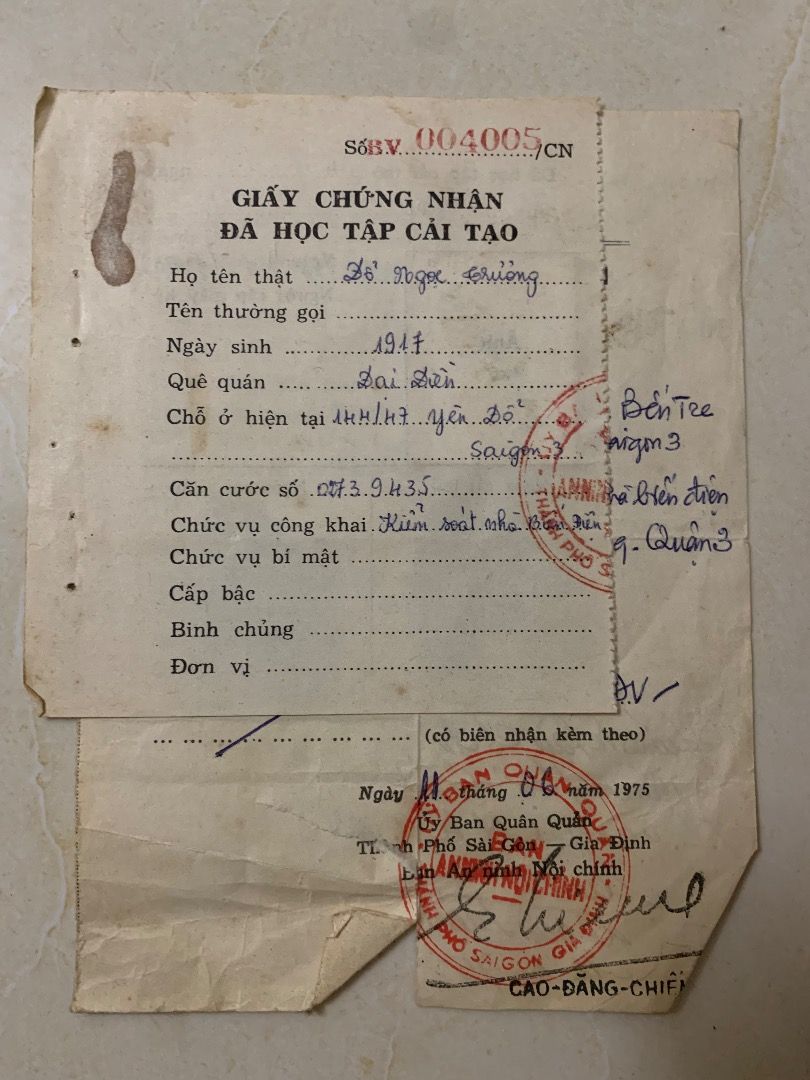 Số BV 004005 /CN
GIẤY CHỨNG NHẬN
ĐÃ HỌC TẬP CẢI TẠO
Họ tên thật Đỗ Ngọc Trường
Tên thường gọi
Ngày sinh 1917
Quê quán Đại Điền
Bến Tre
Chỗ ở hiện tại 144/47 Yên Đổ
Saigon 3
aigon 3
Căn cước số 0273.9435
hà biến điện
Chức vụ công khai Kiểm soát nhà Biến Điện
g. Quận 3
Chức vụ bí mật
Cấp bậc
Binh chủng
Đơn vị
(có biên nhận kèm theo)
Ngày 11 tháng 06 năm 1975
Ủy Ban Quân Quản
Thành Phố Sài Gòn — Gia Định
Ban An ninh Nội chính
ỦY BAN QUÂN QUẢN
BAN
AN NINH NỘI CHÍNH
THÀNH PHỐ SAIGON GIA ĐỊNH
CAO-ĐĂNG-CHIẾM